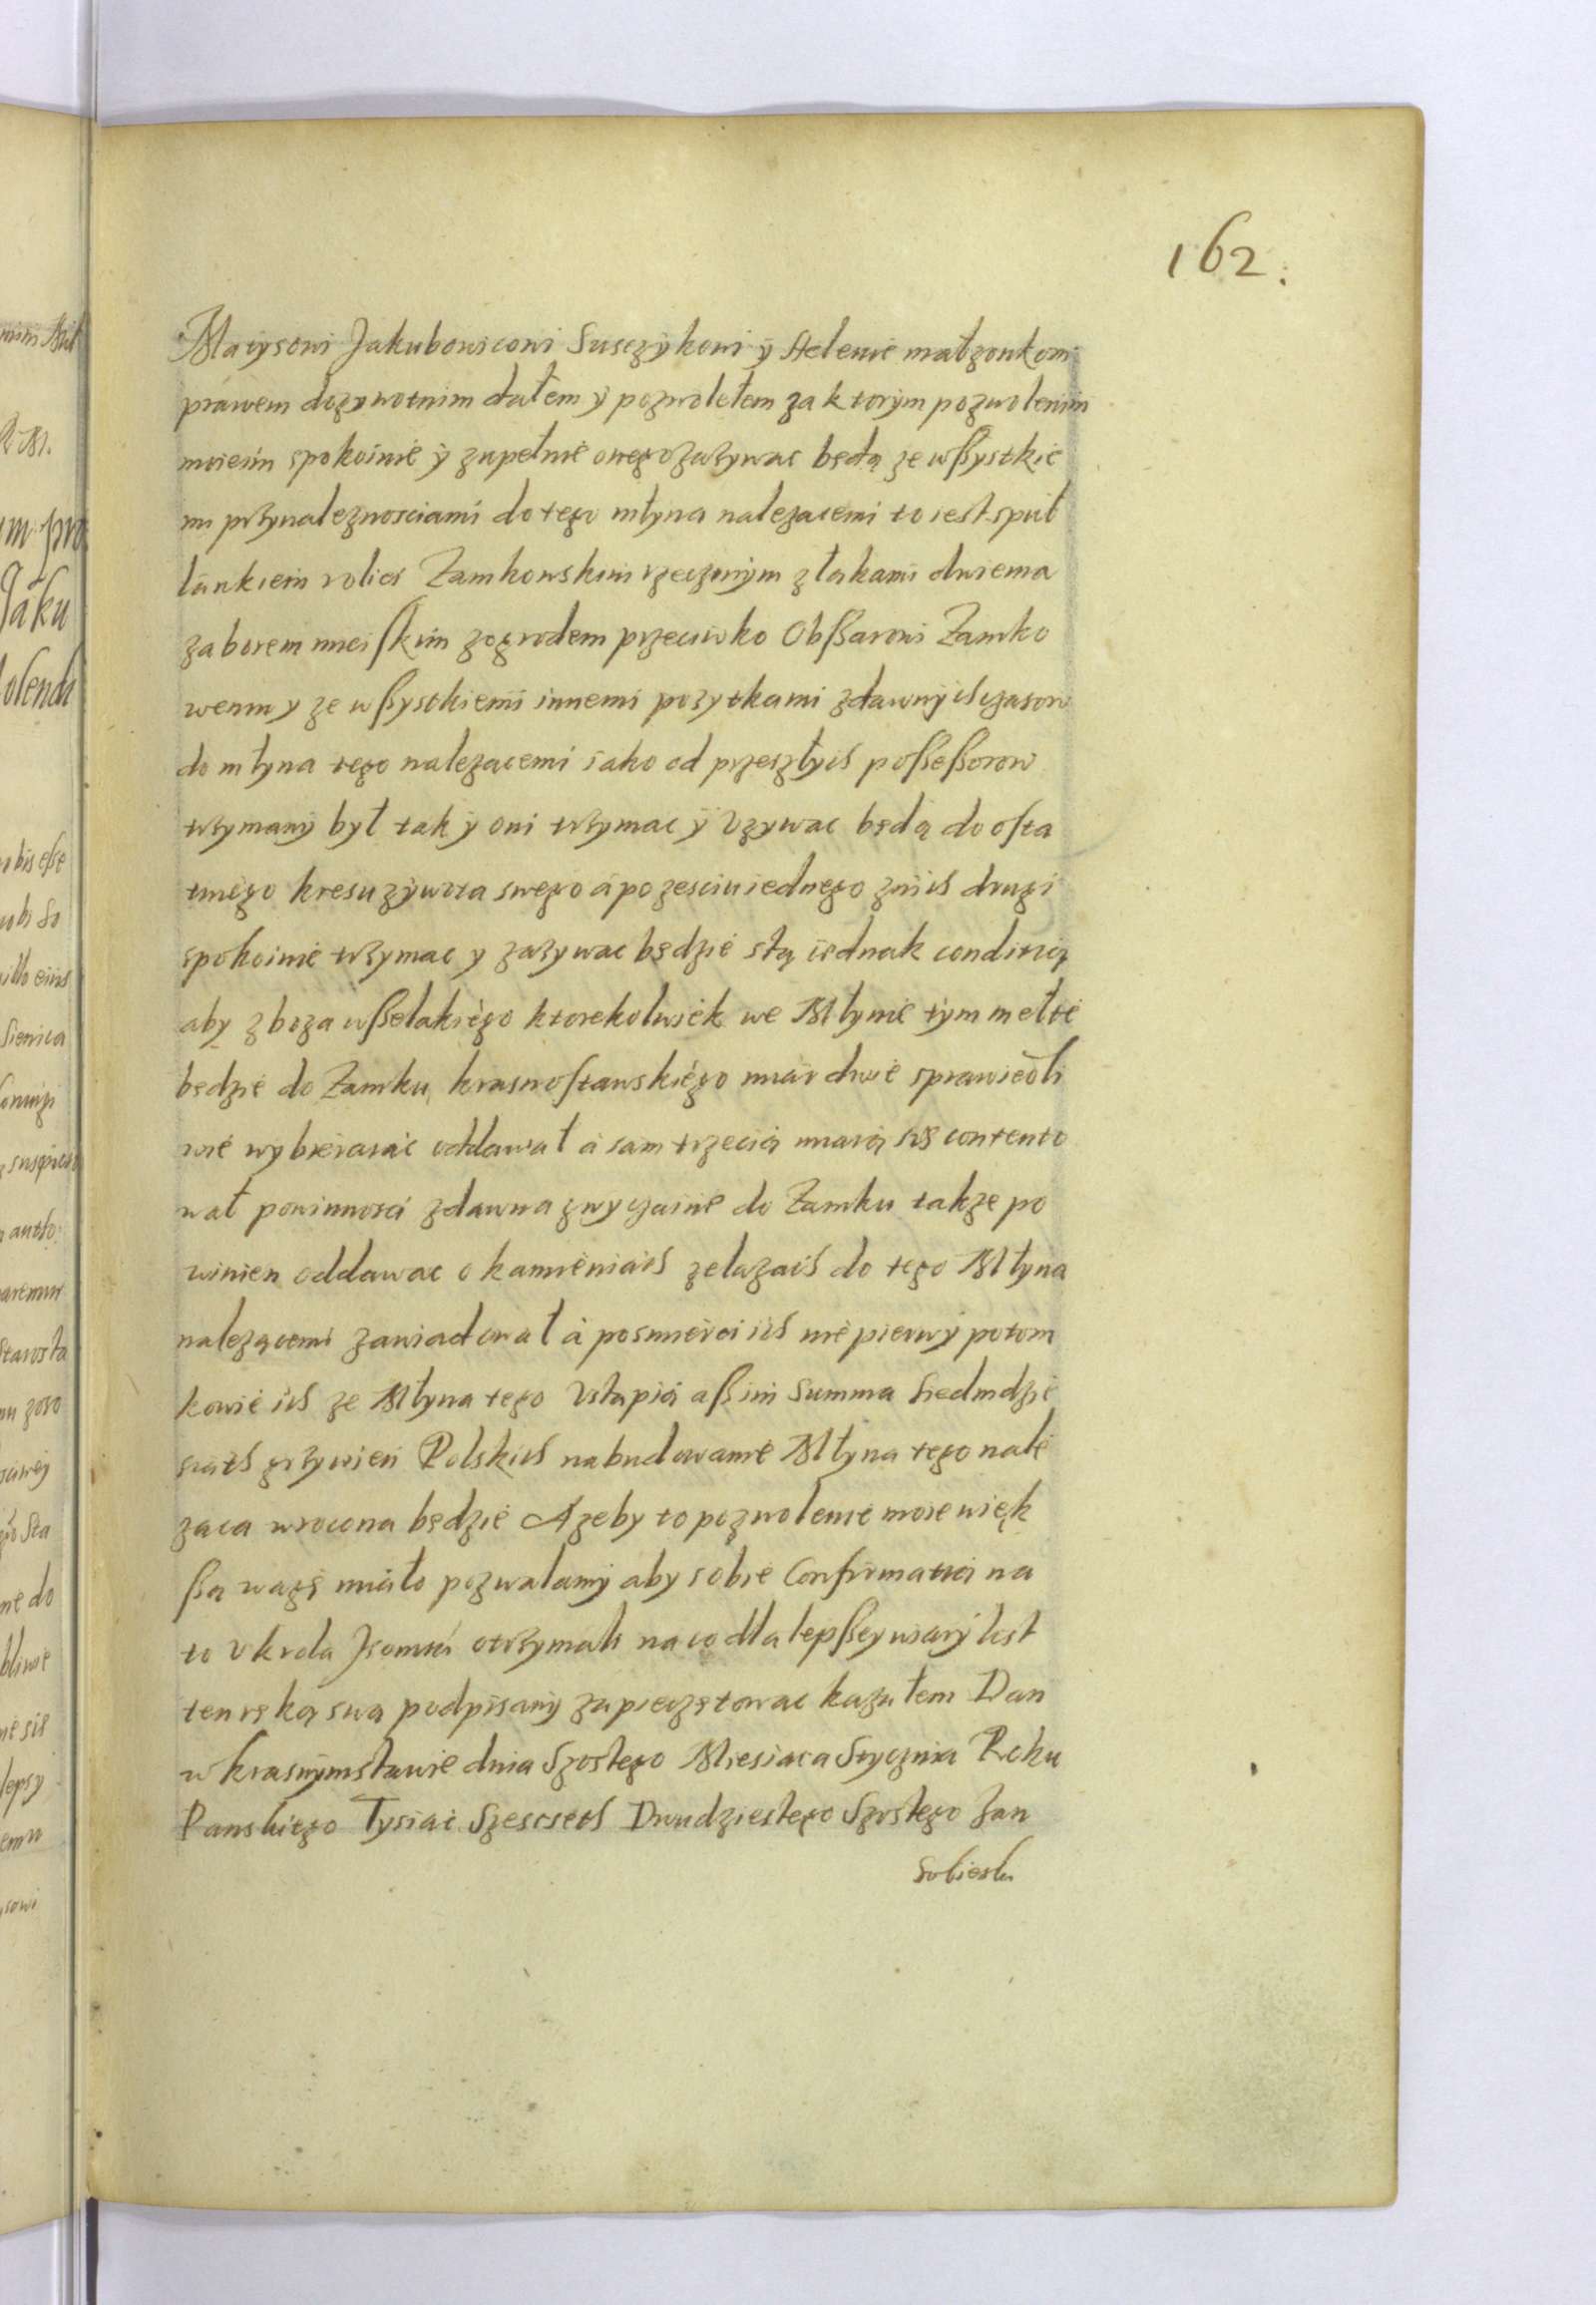 162.
Matysowi Jakubowicowi Susczykowi ÿ Helenie małzonkom
prawem dozywotnim dałem ÿ pozwolełem za ktorÿm pozwolenim
moieim spokoinie ÿ zupełnie onego zazywac będą ze wßystkie
mi przynaleznosciami do tego młyna nalezacemi to iest spuł
lankiem roliei Zamkowskim rzeczonÿm z łąkami dwiema
zaborem mieiskim zogrodem przeciwko Obßarowi Zamko
wemu y ze wßystkiemi innemi pozytkami zdawnÿch czasow
do młyna tego nalezacemi iako od przeszłych poßeßorow
trzymanÿ był tak ÿ oni trzymac ÿ Uzywac będą do osta
tniego kresu zÿwota swego á po zesciu iednego znich drugi
spokoinie trzymac y zazywac będzie stą iednak conditią
aby zboza wßelakiego ktorekolwiek we Młynie tÿm mełte
będzie do Zamku krasnostawskiego miar dwie sprawiedli
wie wybieraiac oddawał á sam trzecia miarą się contento
wał powinnosci zdawna zwyczaine do Zamku takze po
winien oddawac o kamieniach zelazach do tego Młyna
nalezącemi zawiadował á posmierci ich nie pierwÿ potom
kowie ich ze Młyna tego Ustąpią aß im Summa Siedmdzie
siath grzywien Polskich nabudowanie Młyna tego nale
zaca wrocona będzie Azeby to pozwolenie moie więk
ßą wagę miało pozwalamÿ aby sobie Confirmatią na
to U krola Jeomści otrzymali na co dla lepßey wiarÿ list
ten ręką swą podpisanÿ zapieczętowac kazałem Dan
w krasnÿmstawie dnia Szostego Miesiaca Stycznia Roku
Panskiego Tysiac Szescseth Dwudziestego Szostego Jan
Sobieski